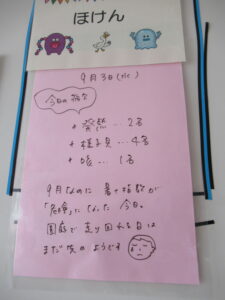 ほけん
9月3日(水)
今日の病欠
+ 発熱…2名
+ 様子見…4名
+ 咳…1名
9月なのに 暑さ指数が
「危険」になった 今日。
園庭で 走り回れる日は
まだ 次のようです